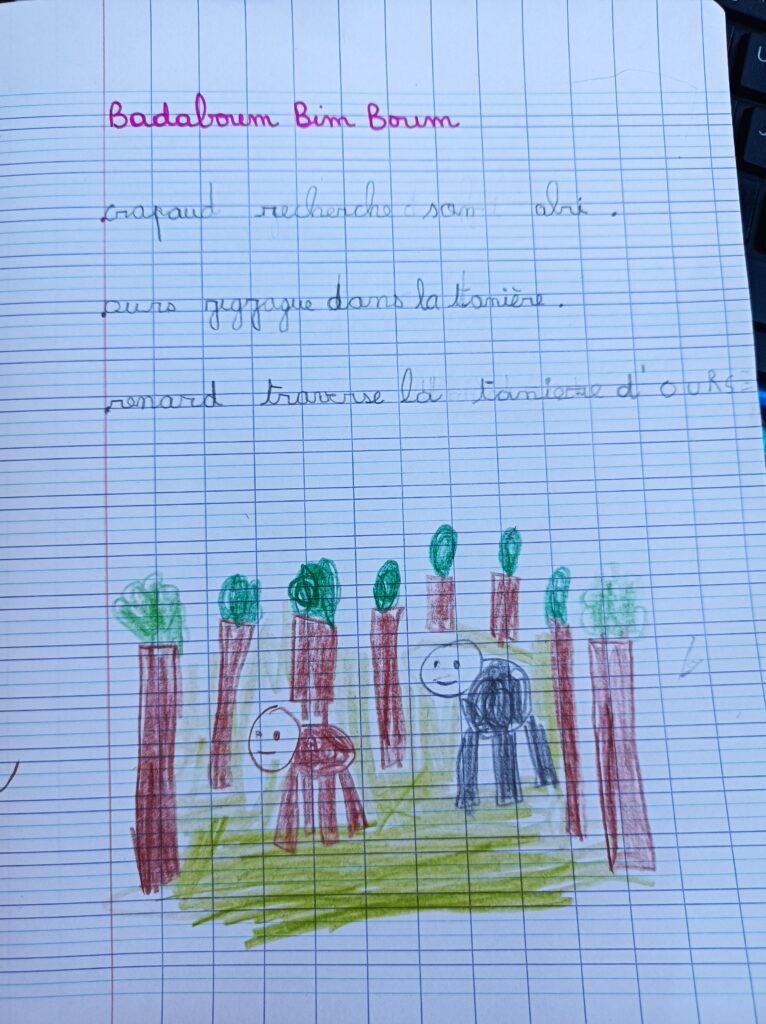 Badaboum Bim Boum
crapaud recherche son abri.
ours zigzague dans la tanière.
renard traverse la taniere d'ouRs